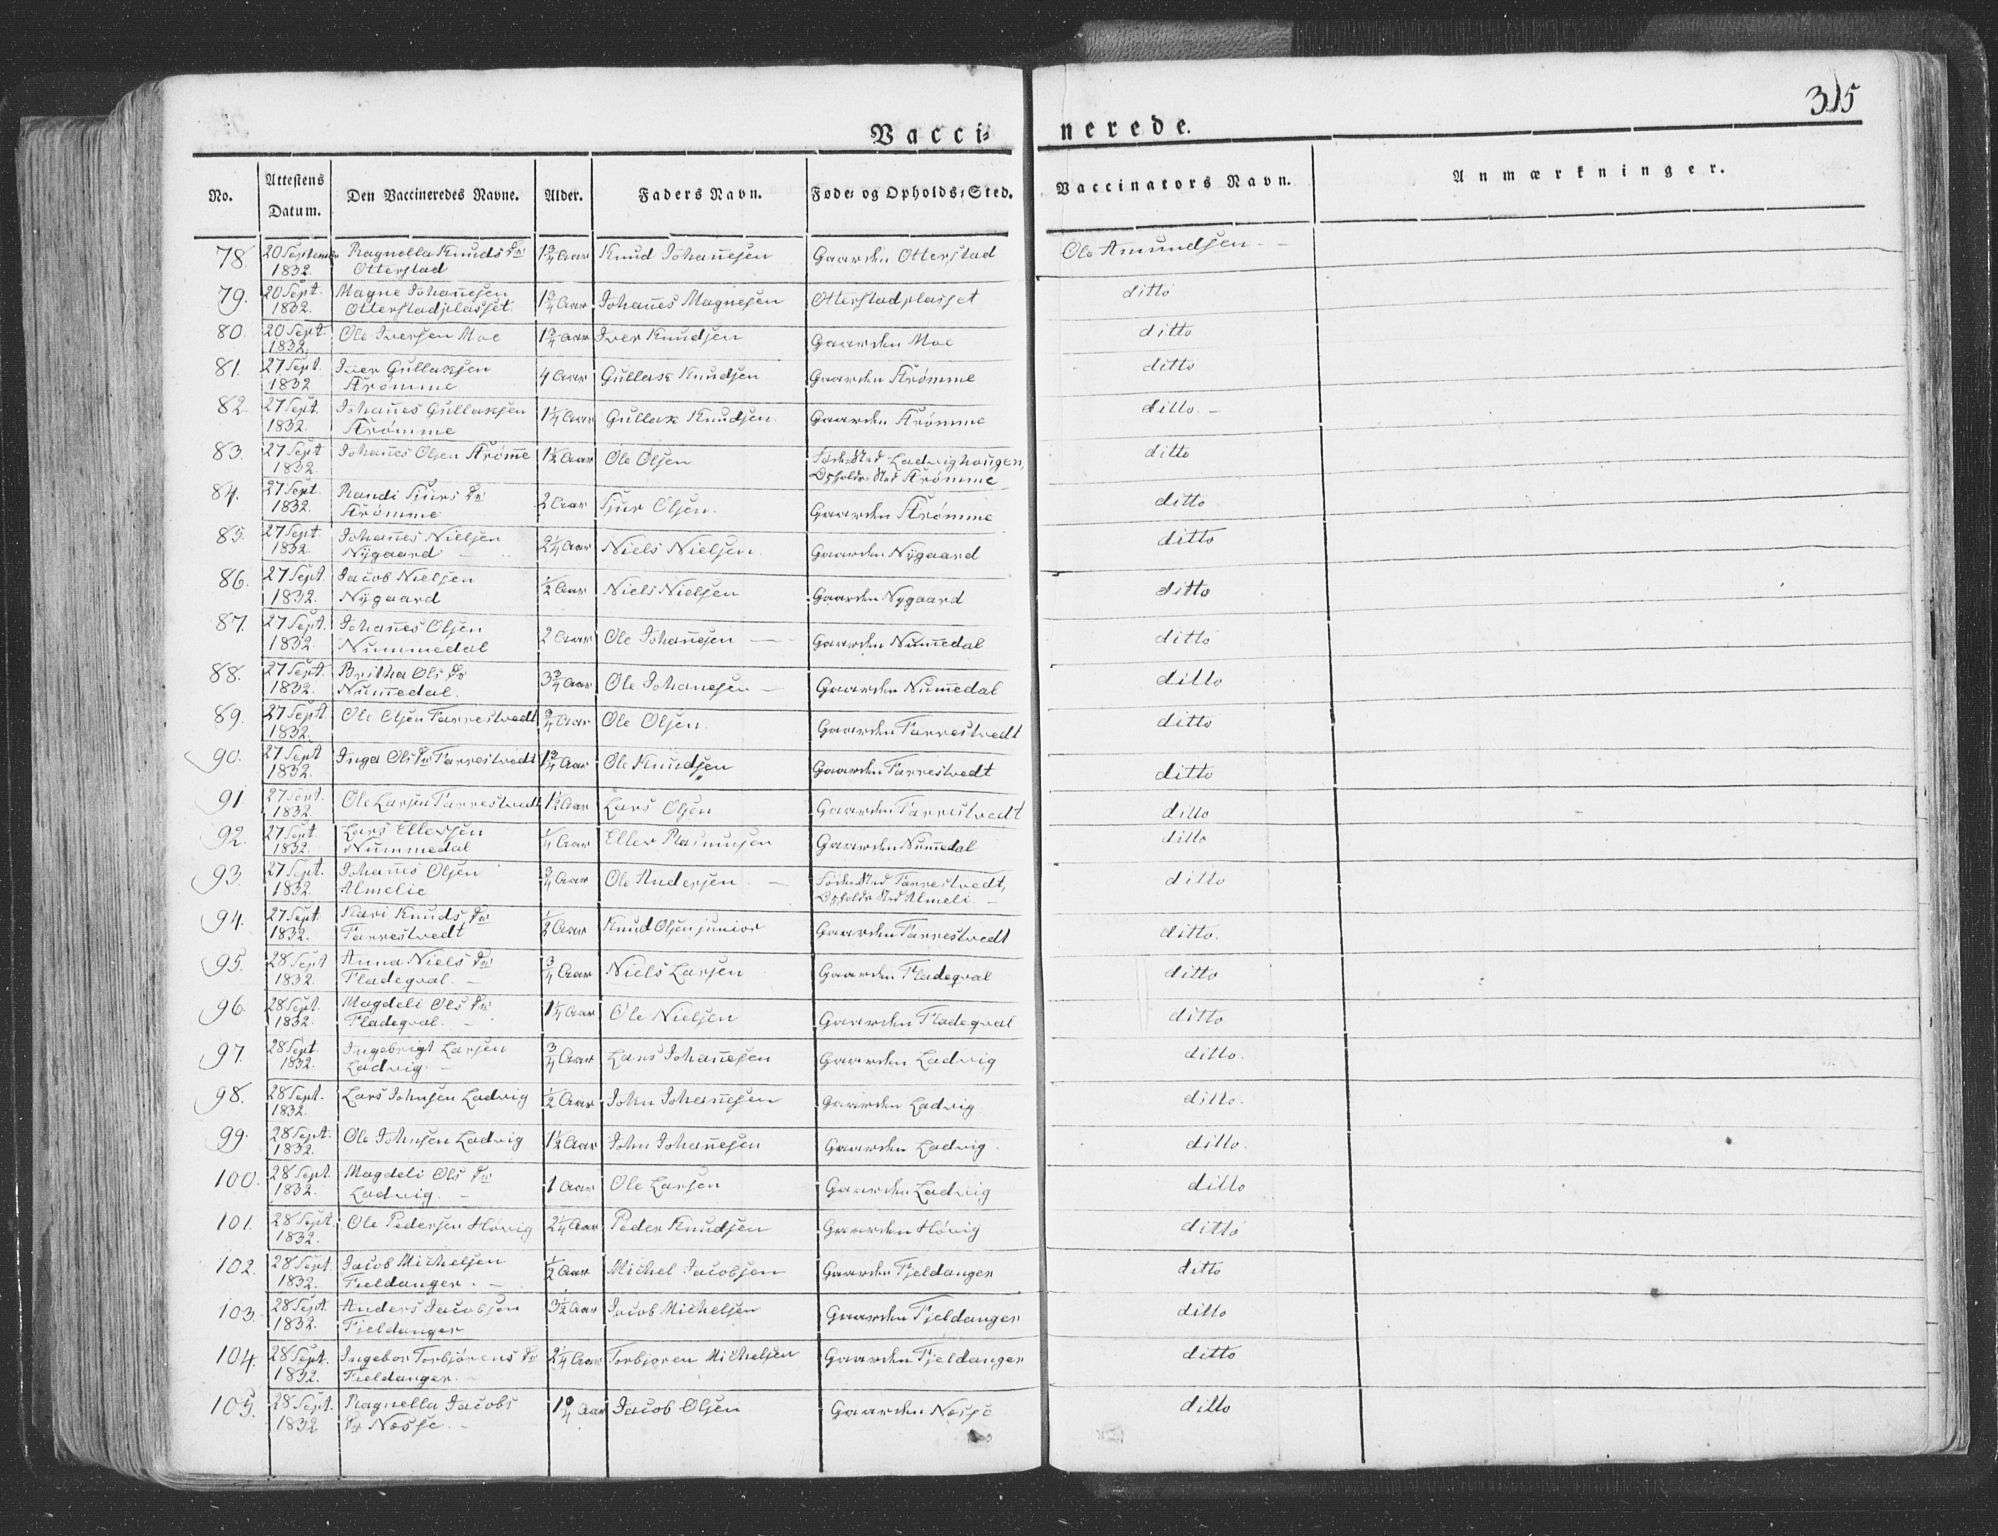 315
Vaccinerede.
No. Attestens Datum. Den Vaccineredes Navne. Alder. Faders Navn. Føde- og Opholds-Sted. Vaccinators Navn. Anmærkninger.
78. 20 September 1832. Ragnella Knuds Dr Otterstad 1 3/4 Aar Knud Johannesen Gaarden Otterstad Ole Amundsen
79. 20 Sept. 1832. Magne Johannesen Otterstadplasset. 1 3/4 Aar Johannes Magnesen Otterstadplasset ditto
80. 20 Sept. 1832. Ole Iversen Moe 1 3/4 Aar Iver Knudsen Gaarden Moe ditto
81. 27 Sept. 1832 Iver Gullaksen Strømme 4 Aar Gullak Knudsen Gaarden Strømme ditto
82. 27 Sept. 1832. Johannes Gullaksen Strømme 1 1/4 Aar Gullak Knudsen Gaarden Strømme ditto.
83. 27 Sept 1832. Johannes Olsen Strømme 1 1/2 Aar Ole Olsen Føde-Sted Ladvighougen, Opholds-Sted Strømme ditto
84. 27 Sept. 1832. Randi Siurs Dr Strømme 2 Aar Siur Olsen. Gaarden Strømme ditto
85. 27 Sept. 1832. Johannes Nielsen Nygaard 2 1/4 Aar Niels Nielsen. Gaarden Nygaard ditto
86. 27 Sept. 1832. Jacob Nielsen Nygaard 1/2 Aar Niels Nielsen Gaarden Nygaard ditto
87. 27 Sept. 1832. Johannes Olsen Nummedal 2 Aar Ole Johannesen Gaarden Nummedal ditto
88. 27 Sept. 1832. Britha Ols Dr Nummedal. 3 3/4 Aar Ole Johannesen Gaarden Nummedal ditto
89. 27 Sept 1832. Ole Olsen Farrestvedt 3/4 Aar Ole Olsen. Gaarden Farrestvedt ditto
90. 27 Sept 1832. Inga Ols Dr Farrestvedt 1 3/4 Aar Ole Knudsen Gaarden Farrestvedt ditto
91 27 Sept. 1832. Ole Larsen Farrestvedt 1 1/2 Aar Lars Olsen Gaarden Farrestvedt ditto
92. 27 Sept 1832. Lars Ellersen Nummedal 1/4 Aar Eller Rasmusen Gaarden Nummedal ditto
93. 27 Sept. 1832. Johannes Olsen Almelie 3/4 Aar Ole Andersen Føde-Sted Farrestvedt, Opholds Sted Almeli ditto
94. 27 Sept. 1832. Kari Knuds Dr Farrestvedt 1/2 Aar Knud Olsen junior Gaarden Farrestvedt ditto.
95. 28 Sept 1832. Anna Niels Dr Fladeqval. 3/4 Aar Niels Larsen Gaarden Fladeqval ditto
96. 28 Sept. 1832. Magdeli Ols Dr Fladeqval. 1 1/4 Aar Ole Nielsen Gaarden Fladeqval ditto
97. 28 Sept. 1832. Ingebrigt Larsen Ladvig. 3/4 Aar Lars Johannesen Gaarden Ladvig ditto.
98. 28 Sept. 1832. Lars Johnsen Ladvig 1/2 Aar John Johannesen Gaarden Ladvig ditto.
99. 28 Sept. 1832. Ole Johnsen Ladvig 1 1/2 Aar John Johannesen Gaarden Ladvig. ditto.
100. 28 Sept 1832. Magdeli Ols Dr Ladvig. 1 Aar Ole Larsen Gaarden Ladvig ditto
101. 28 Sept. 1832. Ole Pedersen Høvig 2 1/4 Aar Peder Knudsen Gaarden Høvig ditto
102. 28 Sept. 1832. Jacob Michelsen Fieldanger. 1/2 Aar Michel Jacobsen Gaarden Fjeldanger ditto
103. 28 Sept 1832. Anders Jacobsen Fieldanger 3 1/2 Aar Jacob Michelsen Gaarden Fjeldanger ditto
104. 28 Sept. 1832. Ingebor Torbjørens Dr Fieldanger. 2 1/4 Aar Torbjøren Michelsen Gaarden Fjeldanger ditto
105. 28 Sept. 1832 Ragnella Jacobs Dr Næsse. Aar Jacob Olsen Gaarden Næsse ditto